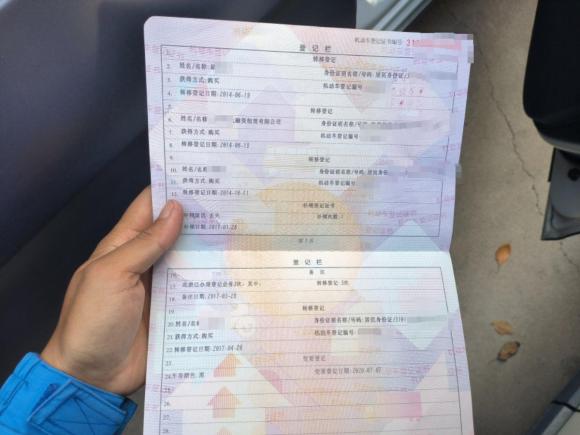 机动车登记证书编号: 31
登记栏
1. 转移登记
2. 姓名/名称: 身份证明名称/号码: 居民身份证/3
3. 获得方式: 购买 机动车登记编号
4. 转移登记日期: 2014-06-
5. 转移登记
6. 姓名/名称: 租赁有限公司 身份证明名称/号码:
7. 获得方式: 购买 机动车登记编号
8. 转移登记日期: 2014-06-
9. 转移登记
10. 姓名/名称 身份证明名称/号码: 居民身份
11. 获得方式: 购买 机动车登记编号
12. 转移登记日期: 2014-10-11
补领登记证书
补领原因: 丢失 补领次数:
补领日期: 2017-03-28
第 3 页
登记栏
16. 备注
17. 此前已办理登记业务3次, 其中: 转移登记: 3次.
18. 备注日期: 2017-03-28
转移登记
20. 姓名/名 身份证明名称/号码: 居民身份证/310
21. 获得方式: 购买 机动车登记编号
22. 转移登记日期: 2017-04-
变更登记
24. 车身颜色: 黑 变更登记日期: 2020-07-07